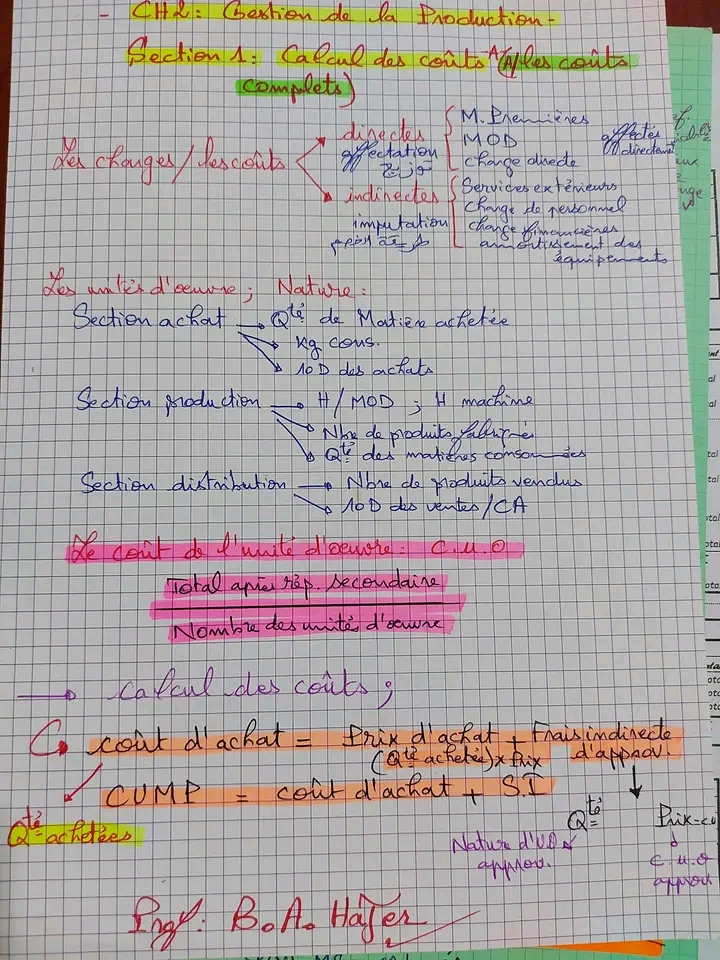 - CH2: Gestion de la Production -
Section 1: Calcul des coûts (les coûts
complets)
Les charges / les coûts
directes
affectation
توزيع
M. Premières
MOD
charge directe
affectés
directement
indirectes
imputation
Services extérieurs
charge de personnel
charge financières
amortissement des
équipements
Les unités d'oeuvre ; Nature :
Section achat → Qté de Matière achetée
→ kg cons.
→ 10 D des achats
Section production → H / MOD ; H machine
→ Nbre de produits fabriqués
→ Qté des matières consommées
Section distribution → Nbre de produits vendus
→ 10 D des ventes / CA
Le coût de l'unité d'oeuvre : C.U.O
Total après rép. secondaire
Nombre des unités d'oeuvre
→ Calcul des coûts ;
coût d'achat = Prix d'achat + Frais indirecte
(Qté achetée) x Prix d'approv.
CUMP = coût d'achat + S.I
Qté achetées
Qté
Nature d'UO
approv.
c.u.o
approv
Prof: B.A. Hajer